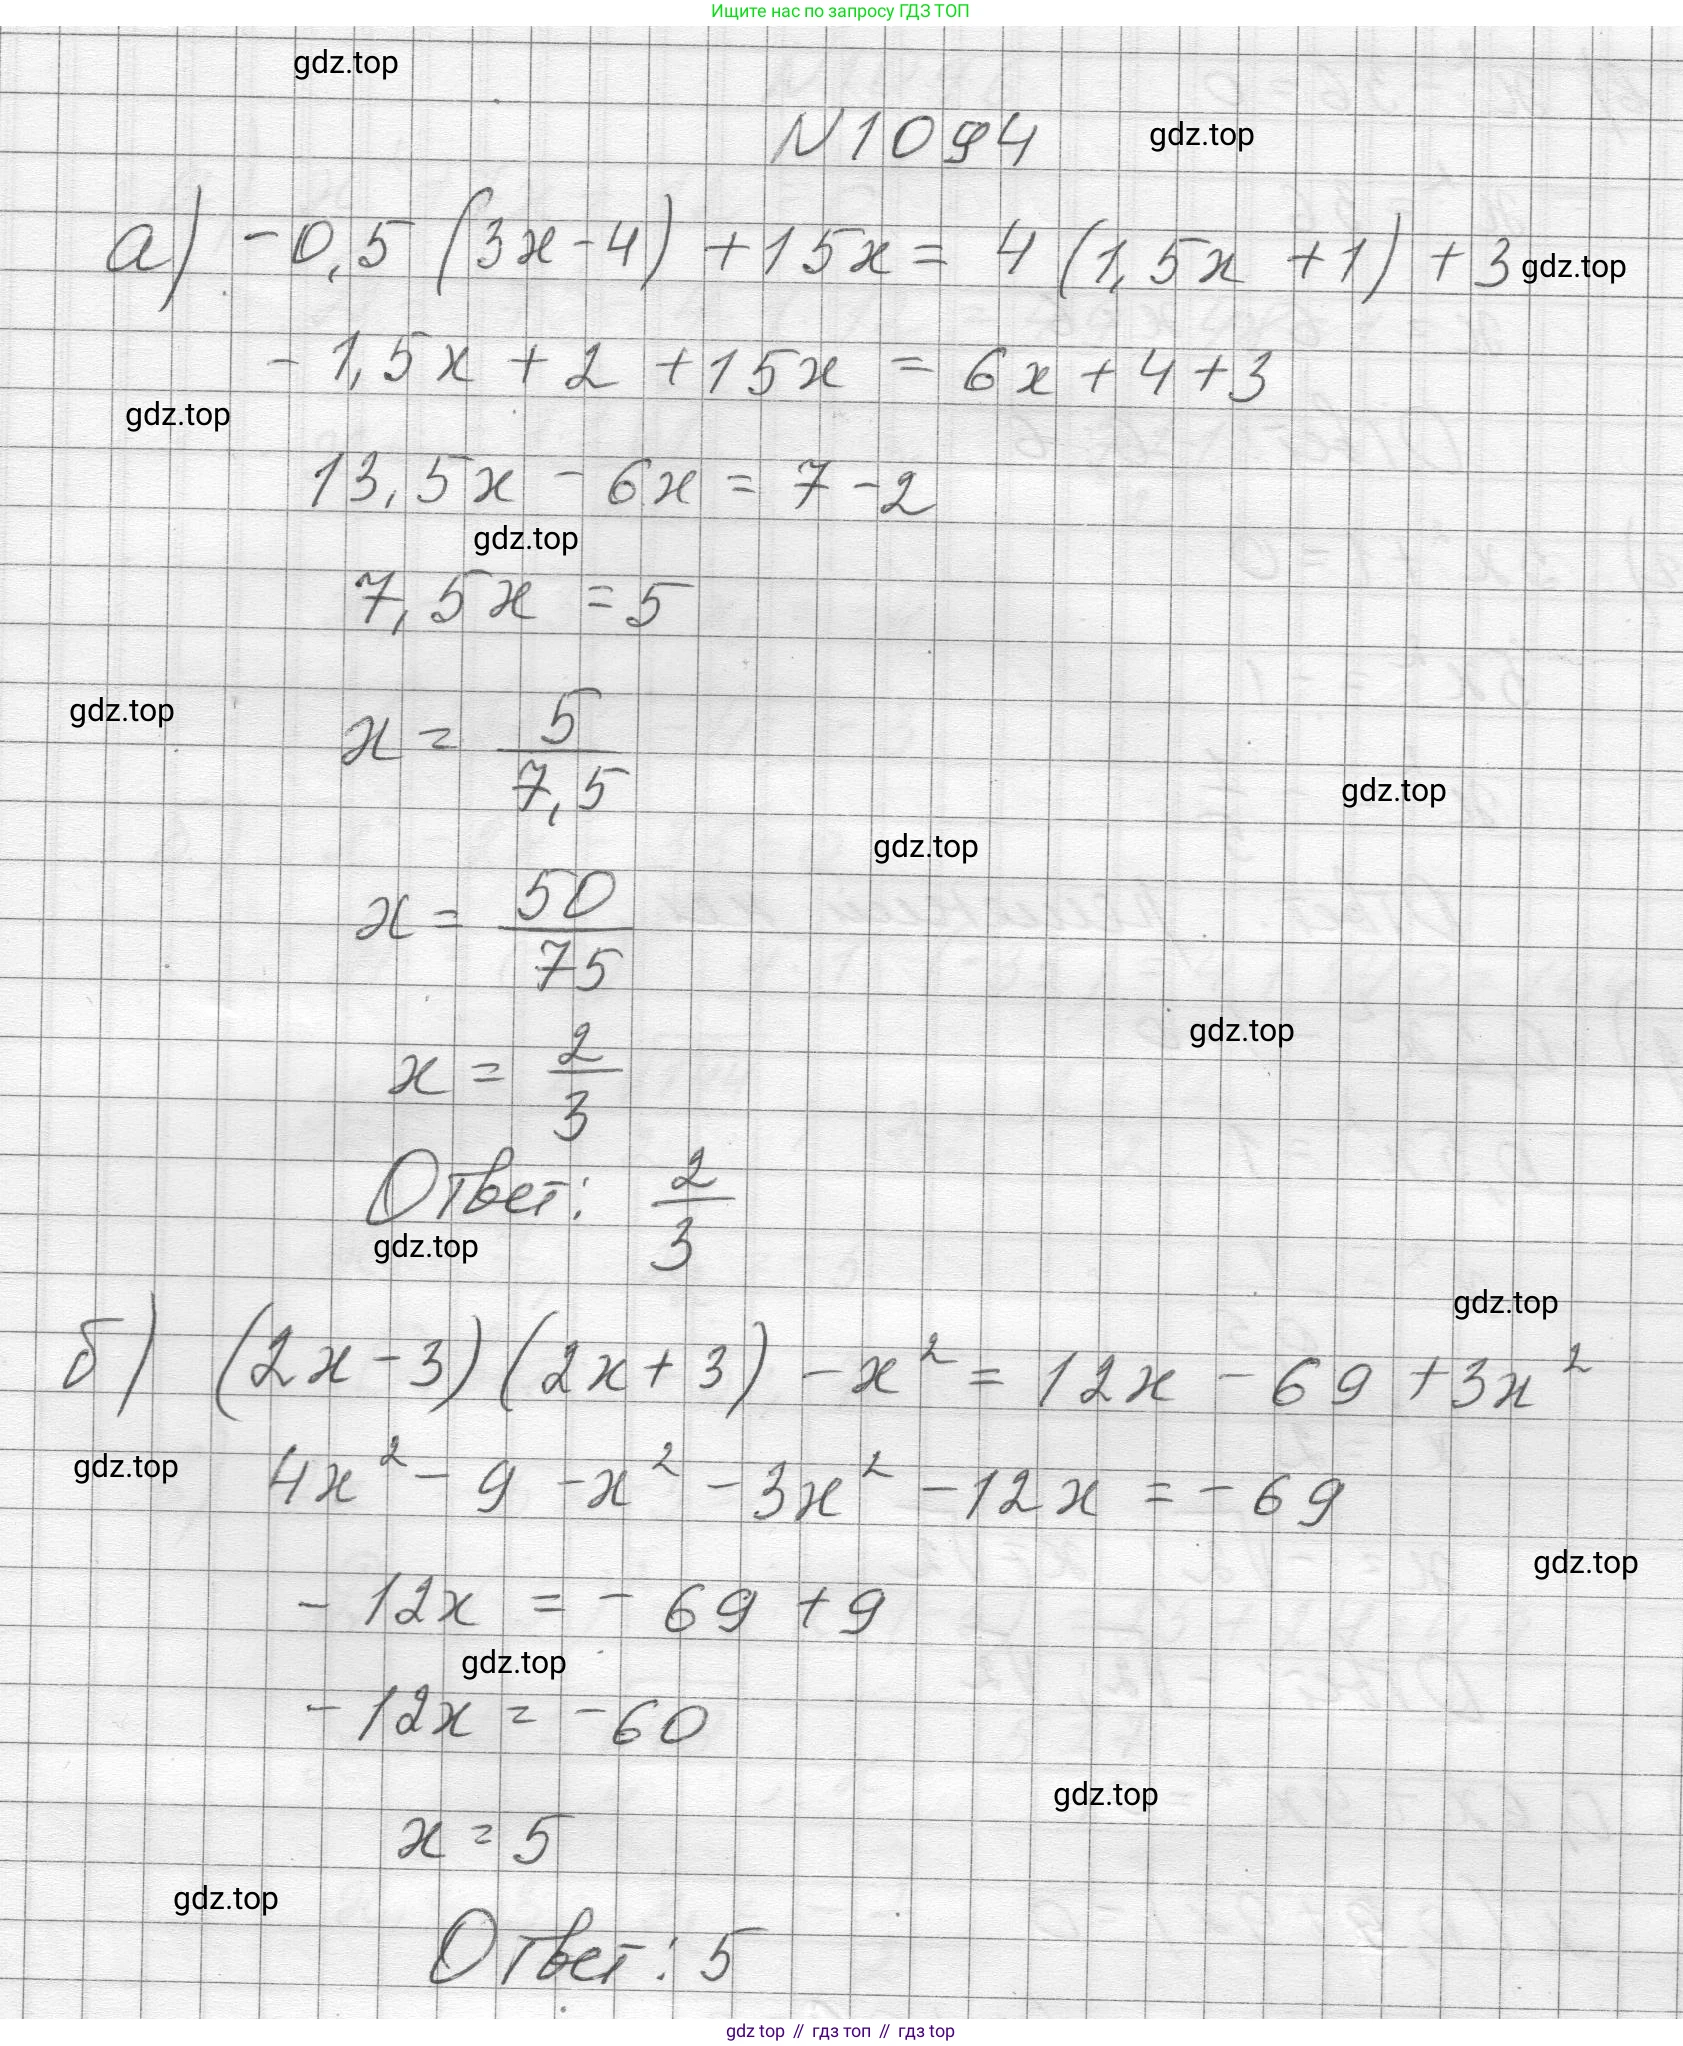 Ищите нас по запросу ГДЗ ТОП
gdz.top
N1094 gdz.top
а) -0,5 (3x-4) +15x = 4 (1,5x +1) + 3 gdz.top
- 1,5x + 2 + 15x = 6x + 4 + 3
gdz.top
13,5x - 6x = 7 - 2
gdz.top
7,5x = 5
gdz.top
x = 5/7,5
gdz.top
gdz.top
x = 50/75
gdz.top
x = 2/3
Ответ: 2/3
gdz.top
gdz.top
б) (2x-3)(2x+3) - x² = 12x - 69 + 3x²
gdz.top
4x² - 9 - x² - 3x² - 12x = - 69
gdz.top
- 12x = - 69 + 9
gdz.top
- 12x = - 60
gdz.top
x = 5
gdz.top
Ответ: 5
gdz top // гдз топ // гдз top